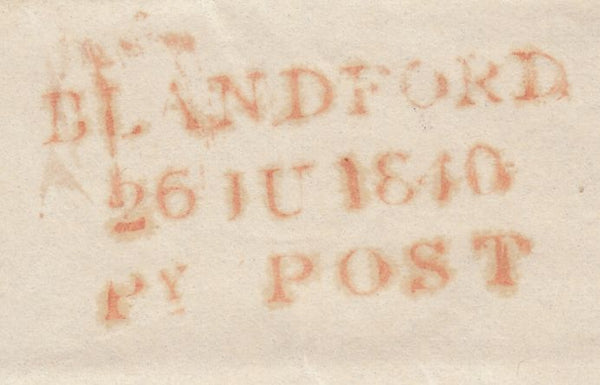 BLANDFORD
26 IU 1840
PY POST